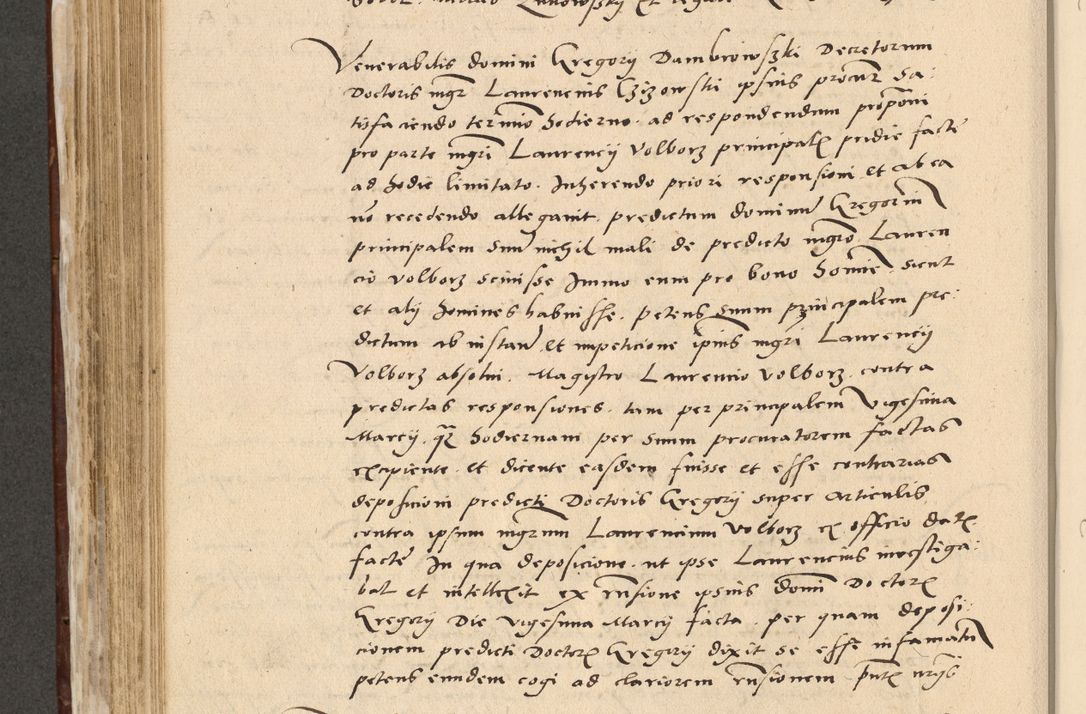 Venerabilis domini Gregorii Dambrowszki Decretorum
Doctoris mgr Laurencius Czizowski ipsius procur sa:
tisfaciendo termino hodierno ad respondendum proponi
pro parte mgri Laurencii Volborz principalem pridie facte
ad hodie limitato. Inherendo priori responsioni et ab ea
non recedendo allegavit predictum dominum Gregorium
principalem suum nichil mali de predicto mgro Lauren
cio Volborz scivisse Immo eum pro bono homine sicut
et alij homines habuisse. petens suum principalem pre:
dictum ab instan et impeticione ipius mgri Laurencii
Volborz absolvi. Magistro Laurencio Volborz contra
predictas responsiones tam per principalem vigesima
Marcii q hodiernam per suum procuratorem factas
excipiente et dicente easdem fuisse et esse contrarias
deposicioni predicti Doctoris Gregorii super articulis
contra ipsum mgrum Laurencium Volborz ex officio dat
facte In qua deposicione ut ipse Laurencius investiga:
bat et intellexit ex rnsione ipsius domi Doctor
Gregorii Die vigesima Marcii facta per quam deposi:
cionem predicti Doctor Gregorii dixit se esse infamatum
petens eundem cogi ad clariorem rnsionem